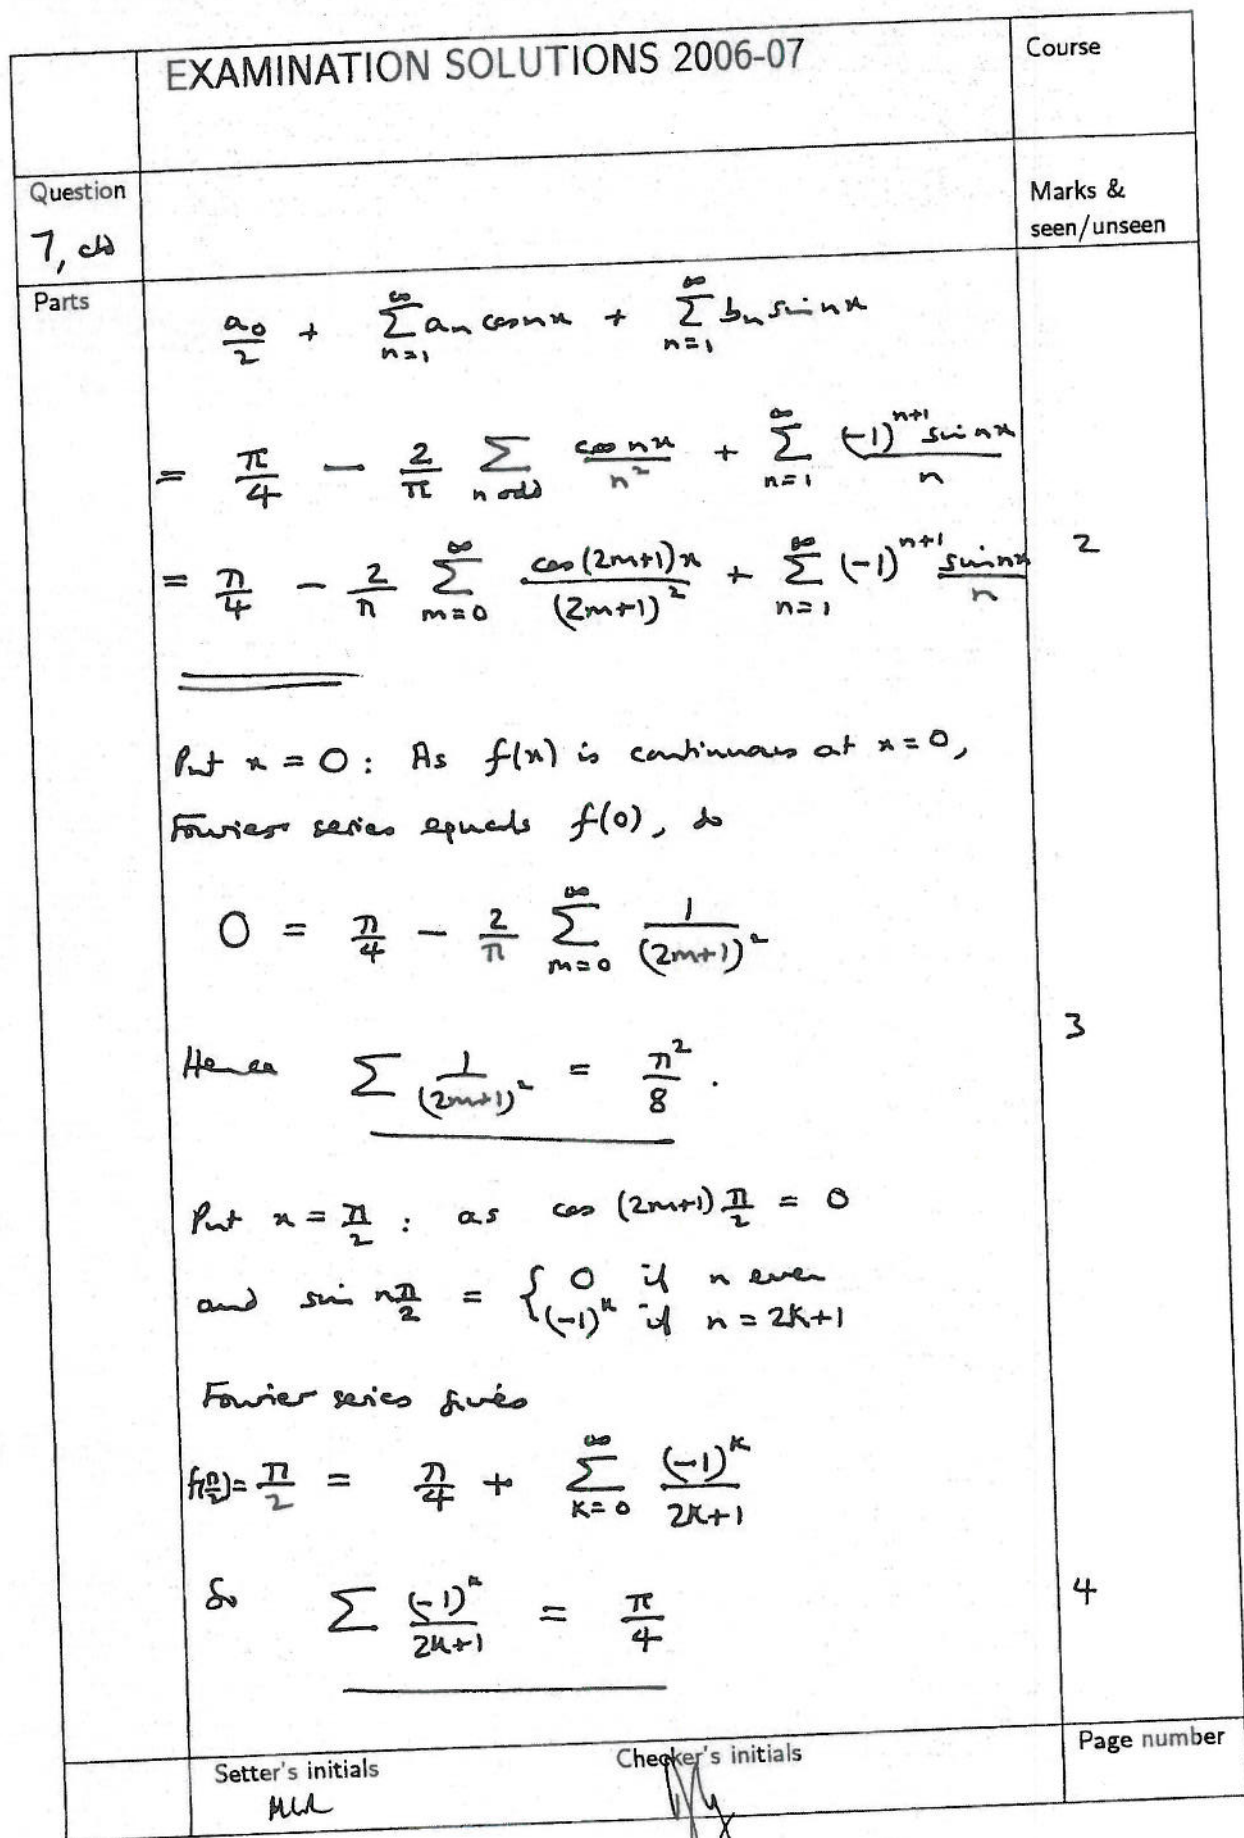 EXAMINATION SOLUTIONS 2006-07
Course
Question
7, ctd
Marks & seen/unseen
Parts
a₀/2 + ∑_{n=1}^∞ aₙ cos nx + ∑_{n=1}^∞ bₙ sin nx
= π/4 − 2/π ∑_{n odd} cos nx / n² + ∑_{n=1}^∞ (-1)^{n+1} sin nx / n
= π/4 − 2/π ∑_{m=0}^∞ cos(2m+1)x / (2m+1)² + ∑_{n=1}^∞ (-1)^{n+1} sin nx / n
2
Put x = 0 : As f(x) is continuous at x = 0,
Fourier series equals f(0), so
0 = π/4 − 2/π ∑_{m=0}^∞ 1/(2m+1)²
3
Hence ∑ 1/(2m+1)² = π²/8 .
Put x = π/2 : as cos (2m+1) π/2 = 0
and sin nπ/2 = { 0 if n even
(-1)^k if n = 2k+1
Fourier series gives
f(π/2) = π/2 = π/4 + ∑_{k=0}^∞ (-1)^k / 2k+1
So ∑ (-1)^k / 2k+1 = π/4
4
Setter's initials
Checker's initials
Page number